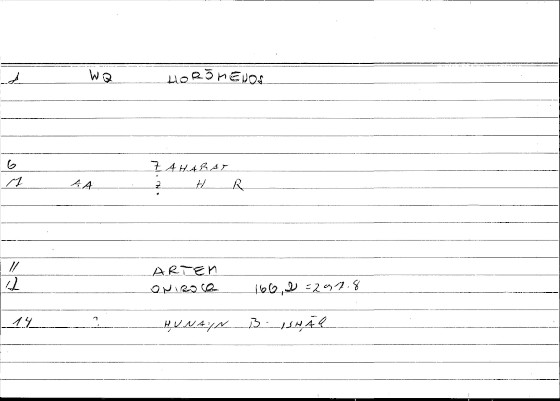 1 WQ HORŌMENOS
6 ZAHARAT
7 AA Ẓ H R
11 ARTEM
12 ONIROCR 166,21 = 291.8
14 ? ḤUNAYN B. ISḤĀQ